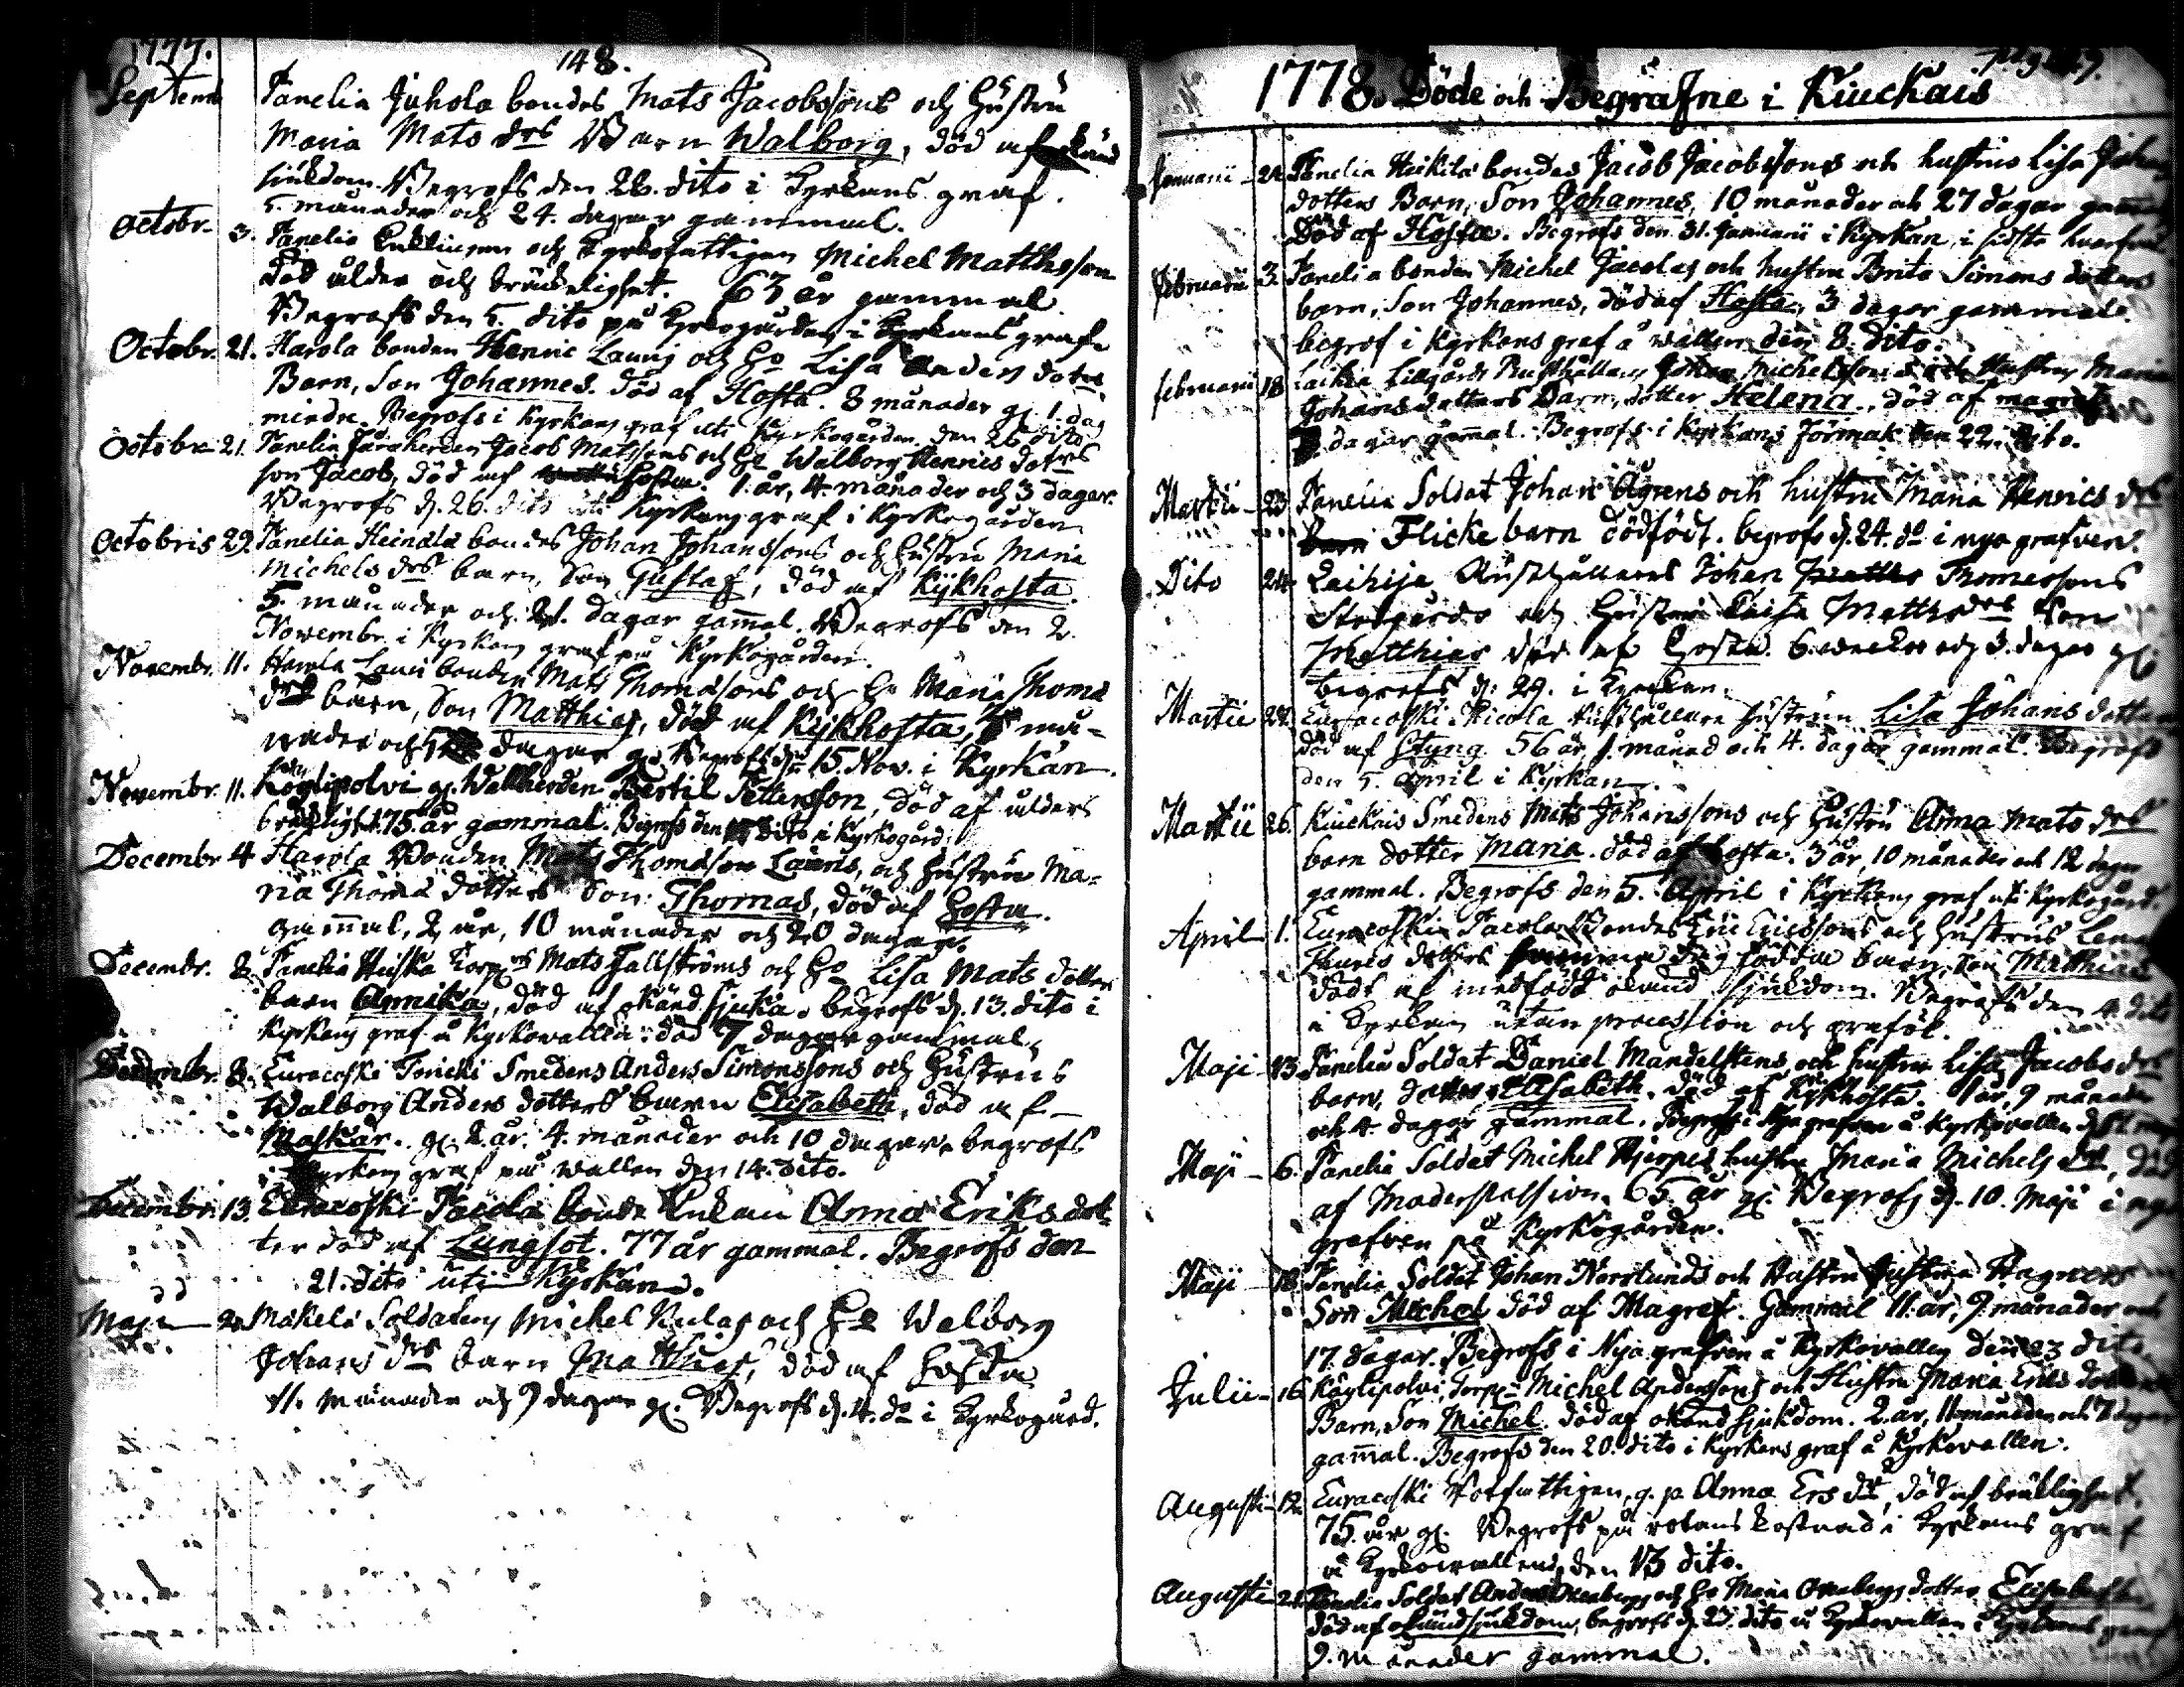 1777.
148.
Septemb
Panelia Juhola bondes Mats Jacobssons och Hustru
Maria Mats drs Barn Walborg, död af okänd
siukdom. Begrofs den 28. dito i Kyrkans graf.
5. månader och 24. dagar gammal.
Octobr. 3. Panelia Enklingen och Kyrkofattigen Michel Matthsson
död ålder och bräcklighet. 63 år gammal
Begrofs den 5. dito på Kyrkogården i Kyrkans graf
Octobr. 21. Harola bonden Henric Launj och Ho Lisa Anders dotrs
Barn, Son Johannes. död af Hosta. 8 månader gl. 1. dag
mindre. Begrofs i Kyrkans graf uti Kyrkogården den 26 dito
Octobr 21. Panelia Jacob Matssons och Ho Walborg Henrics dotrs
son Jacob, död af hosta. 1. år, 4. månader och 3 dagar.
Begrofs d. 26. dito uti Kyrkans graf i Kyrkogården
Octobris 29. Panelia Heinola bondes Johan Johanssons och Hustru Maria
Michels drs barn, Son Gustaf, död af Kykhosta.
5. månader och 21. dagar gammal. Begrofs den 2.
Novembr. i Kyrkans graf på Kyrkogården.
Novembr. 11. Harola Lauri bonden Mats Thomassons och Ho Maria Thomæ
drs barn, Son Matthias, död af Kykhosta, må-
nader och dagar gl. Begrofs den 15. Nov. i Kyrkan.
Novembr. 11. Köylipolvi gl. Wallherden Bertil Pettersson, död af ålders
bräcklighet. 75. år gammal. Begrofs den dito i Kyrkogård.
Decembr 4 Harola Bonden Mats Thomæson Lauris, och Hustru Ma-
ria Thomæ dotters Son Thomas, död af Hosta.
gammal, 2 år, 10 månader och 20 dagar.
Decembr. 8. Panelia Heiska Torp. Mats Fallströms och Ho Lisa Mats dotters
barn Annika, död af okänd sjuka. begrofs d. 13. dito i
Kyrkans graf å Kyrkovallen: död 7 dagar gammal.
Decembr. 8. Euracoski Smedens Anders Simonssons och Hustrus
Walborg Anders dotters barn Elisabeth, död af
Maskar. gl. 2. år, 4. månader och 10 dagar, begrofs
i Kyrkans graf på wallen den 14. dito.
Decembr. 13. Euracoski Jacola bonde Enkan Anna Eriks dot-
ter död af Lungsot. 77 år gammal. Begrofs den
21. dito uti Kyrkan.
Maji 2. Mäkelä Soldatens Michel Kulas och Ho Walborg
Johans drs barn Matthias, död af Hosta
11. månader och 9 dagar gl. Begrofs d. 4. do i Kyrkogård.
1778. Döde och Begrafne i Kiuckais
Januarii 24 Panelia Heikilä bondes Jacob Jacobssons och hustrus Lisa Johans
dotters Barn, Son Johannes, 10 månader och 27 dagar gammal
Död af Hosta. Begrofs den 31. Januarii i Kyrkan, i sidsta hvarfvet
Februarii 3. Panelia bonden Michel Jacolas och hustru Brita Simons dotters
barn, Son Johannes, död af Hosta, 3 dagar gammal.
begrof i Kyrkans graf å wallen den 8. dito.
Februarii 18 Laihia Lillgårds Rusthållare Johan Michelssons och Hustrus Maria
Johans dotters Barn, dotter Helena, död af magref
dagar gammal. Begrofs i Kyrkans Förmak den 22. dito.
Martii 23 Panelia Soldat Johan Ögrens och hustru Maria Henrics drs
barn Flicke barn dödfödt. begrofs d. 24. do i nya grafven.
Dito 24 Laihija Rusthållares Johan Thomassons
Storgårds och Hustru Caisa Matths drs Son
Matthias död af Hosta. 6. weckor och 3. dagar gl.
begrofs d. 29. i Kyrkan.
Martii 24. Euracoski Nicola Rusthållare Hustrun Lisa Johans dotter
död af Styng. 56 år, 1. månad och 4. dagar gammal. Begrofs
den 5. April i Kyrkan.
Martii 26. Kiuckais Smedens Mats Johanssons och Hustru Anna Mats drs
barn dotter Maria. död af Hosta. 3 år, 10 månader och 12 dagar
gammal. Begrofs den 5. April i Kyrkans graf uti Kyrkogård.
April 1. Euracoski Jacola Bondes Eric Ericssons och Hustrus Lena
Lauris dotters födda barn, son Matthias
död af medfödd okänd sjukdom. Begrofs den 4. dito
i Kyrkan utan procession och graföl.
Maji 13 Panelia Soldat Daniel Mandelstens och hustru Lisa Jacobs drs
barn, dotter Elisabeth, död af Kykhosta. 1 år, 9 månader
och 4. dagar gammal. Begrofs i Nya grafven å Kyrkovallen
Maji 6. Panelia Soldat Michel Hjerpes hustru Maria Michels dr, död
af Moderpassion. 65. år gl. Begrofs d. 10. Maji i nya
grafven på Kyrkogården.
Maji 18. Panelia Soldat Johan Norrlunds och Hustru Justina
Son Michel död af Magref. Gammal 11. år, 9. månader och
17. dagar. Begrofs i Nya grafven å Kyrkovallen den 23 dito.
Julii 16 Köylipolvi, Torp. Michel Anderssons och Hustru Maria Erics dotters
Barn, Son Michel. död af okänd sjukdom. 2. år, 11. månader och 7 dagar
gammal. Begrofs den 20. dito i Kyrkans graf å Kyrkovallen.
Augusti 12. Euracoski Rotfattigen, g. p. Anna Ers dr, död af bräcklighet.
75. år gl. Begrofs på rotans kostnad i Kyrkans graf
å Kyrkowallen, den 13 dito.
Augusti 21. Panelia Soldat Anders och Ho Maria dotter Elisabeth
död af okänd sjukdom, begrofs d. 23. dito å Kyrkovallen i Kyrkans graf
9. månader gammal.